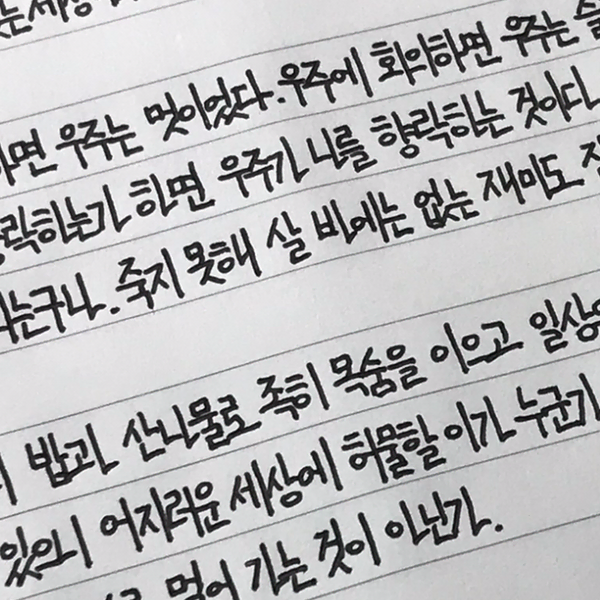 는 세상
하면 우주는 멋이었다. 우주에 회의하면 우주는 슬
락하는가 하면 우주가 나를 향락하는 것이다.
는구나. 죽지 못해 살 바에는 없는 재미도
밥과 산나물로 족히 목숨을 이으고 일상
있으니 어지러운 세상에 허물할 이가 누군가
먹어 가는 것이 아닌가.